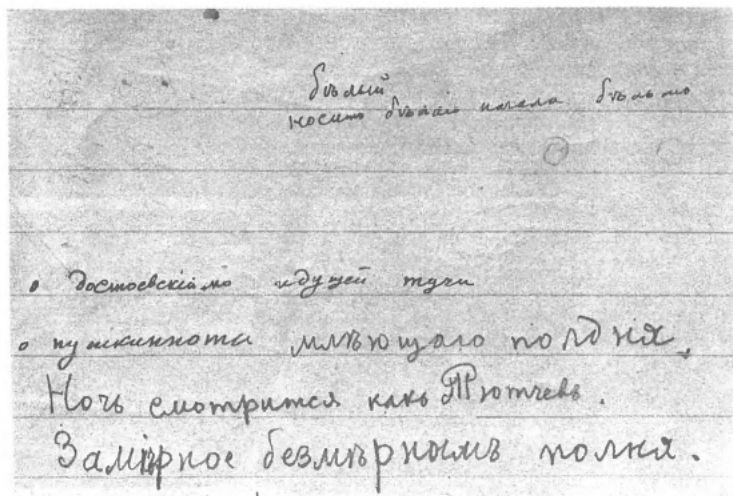 бѣлый
носит
О достоевскiймо идущей тучи
О пушкинноты млѣющаго полдня,
Ночь смотрится какъ Тютчевъ.
Замѣрное безмѣрнымъ полня.